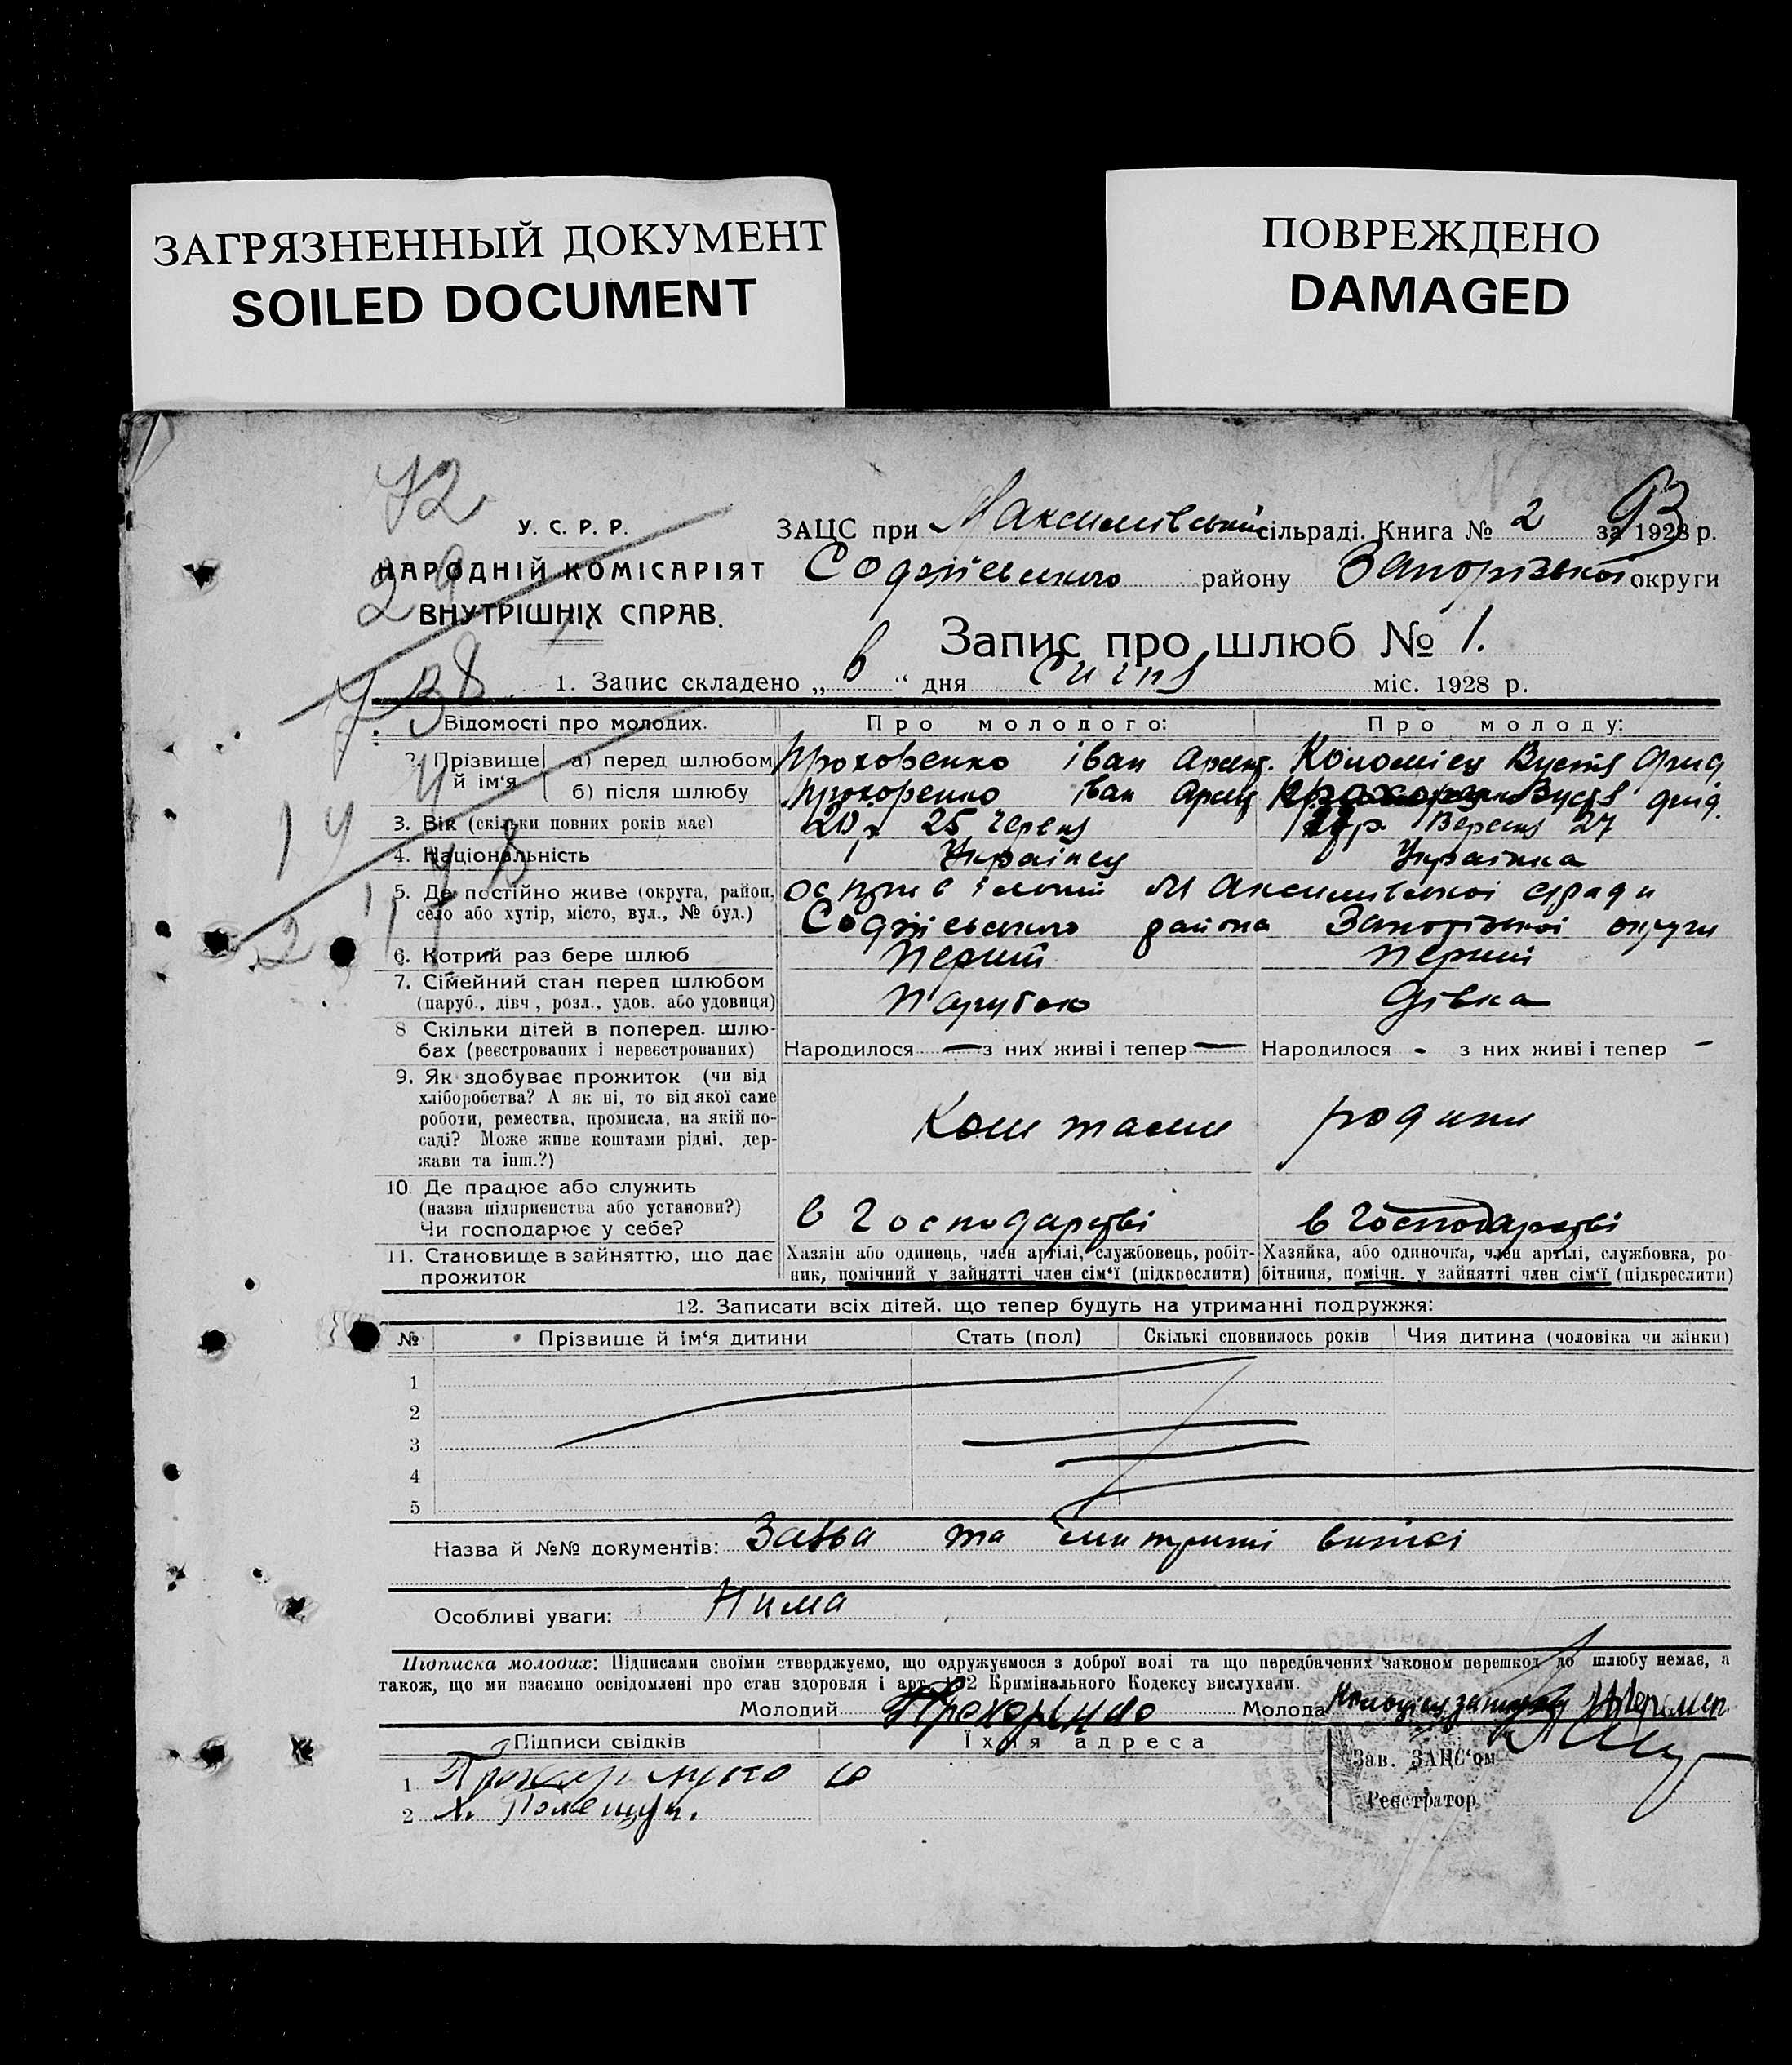 ЗАГРЯЗНЕННЫЙ ДОКУМЕНТ
SOILED DOCUMENT
ПОВРЕЖДЕНО
DAMAGED
У. С. Р. Р.
НАРОДНІЙ КОМІСАРІЯТ
ВНУТРІШНІХ СПРАВ.
ЗАЦС при Максимівській сільраді. Книга № 2 за 1928 р.
93
Софіївського району Запорізької округи
Запис про шлюб № 1.
1. Запис складено „ 6 “ дня Січня міс. 1928 р.
Відомості про молодих. Про молодого: Про молоду:
2. Прізвище й ім‘я
а) перед шлюбом Прохоренко Іван Коломієц Вустя
б) після шлюбу Прохоренко Іван Прохоренко Вустя
3. Вік (скільки повних років має) 20 р 25 Червня р. Вересня 27
4. Національність Українец Українка
5. Де постійно живе (округа, район, село або хутір, місто, вул., № буд.)
Максимівської с/ради
Софіївського района Запорізької округи
6. Котрий раз бере шлюб Перший Перший
7. Сімейний стан перед шлюбом (паруб., дівч., розл., удов. або удовиця) Парубок Дівка
8 Скільки дітей в поперед. шлюбах (реєстрованих і нереєстрованих)
Народилося — з них живі і тепер — Народилося - з них живі і тепер -
9. Як здобуває прожиток (чи від хліборобства? А як ні, то від якої саме роботи, ремества, промисла, на якій посаді? Може живе коштами рідні, держави та інш.?)
Коштами родини
10 Де працює або служить (назва підприємства або установи?) Чи господарює у себе?
в Господарстві в Господарстві
11. Становище в зайняттю, що дає прожиток
Хазяїн або одинець, член артілі, службовець, робітник, помічний у зайнятті член сім‘ї (підкреслити)
Хазяйка, або одиночка, член артілі, службовка, робітниця, помічн. у зайнятті член сім‘ї (підкреслити)
12. Записати всіх дітей, що тепер будуть на утриманні подружжя:
№ Прізвище й ім‘я дитини Стать (пол) Скількі сповнилось років Чия дитина (чоловіка чи жінки)
1
2
3
4
5
Назва й №№ документів: Заява та метричні виписі
Особливі уваги: Нима
Підписка молодих: Підписами своїми стверджуємо, що одружуємося з доброї волі та що передбачених законом перешкод до шлюбу немає, а
також, що ми взаємно освідомлені про стан здоровля і арт. 152 Кримінального Кодексу вислухали.
Молодий Прохоренко Молода
Підписи свідків Їхня адреса
1
2
Зав. ЗАЦС‘ом
Реєстратор